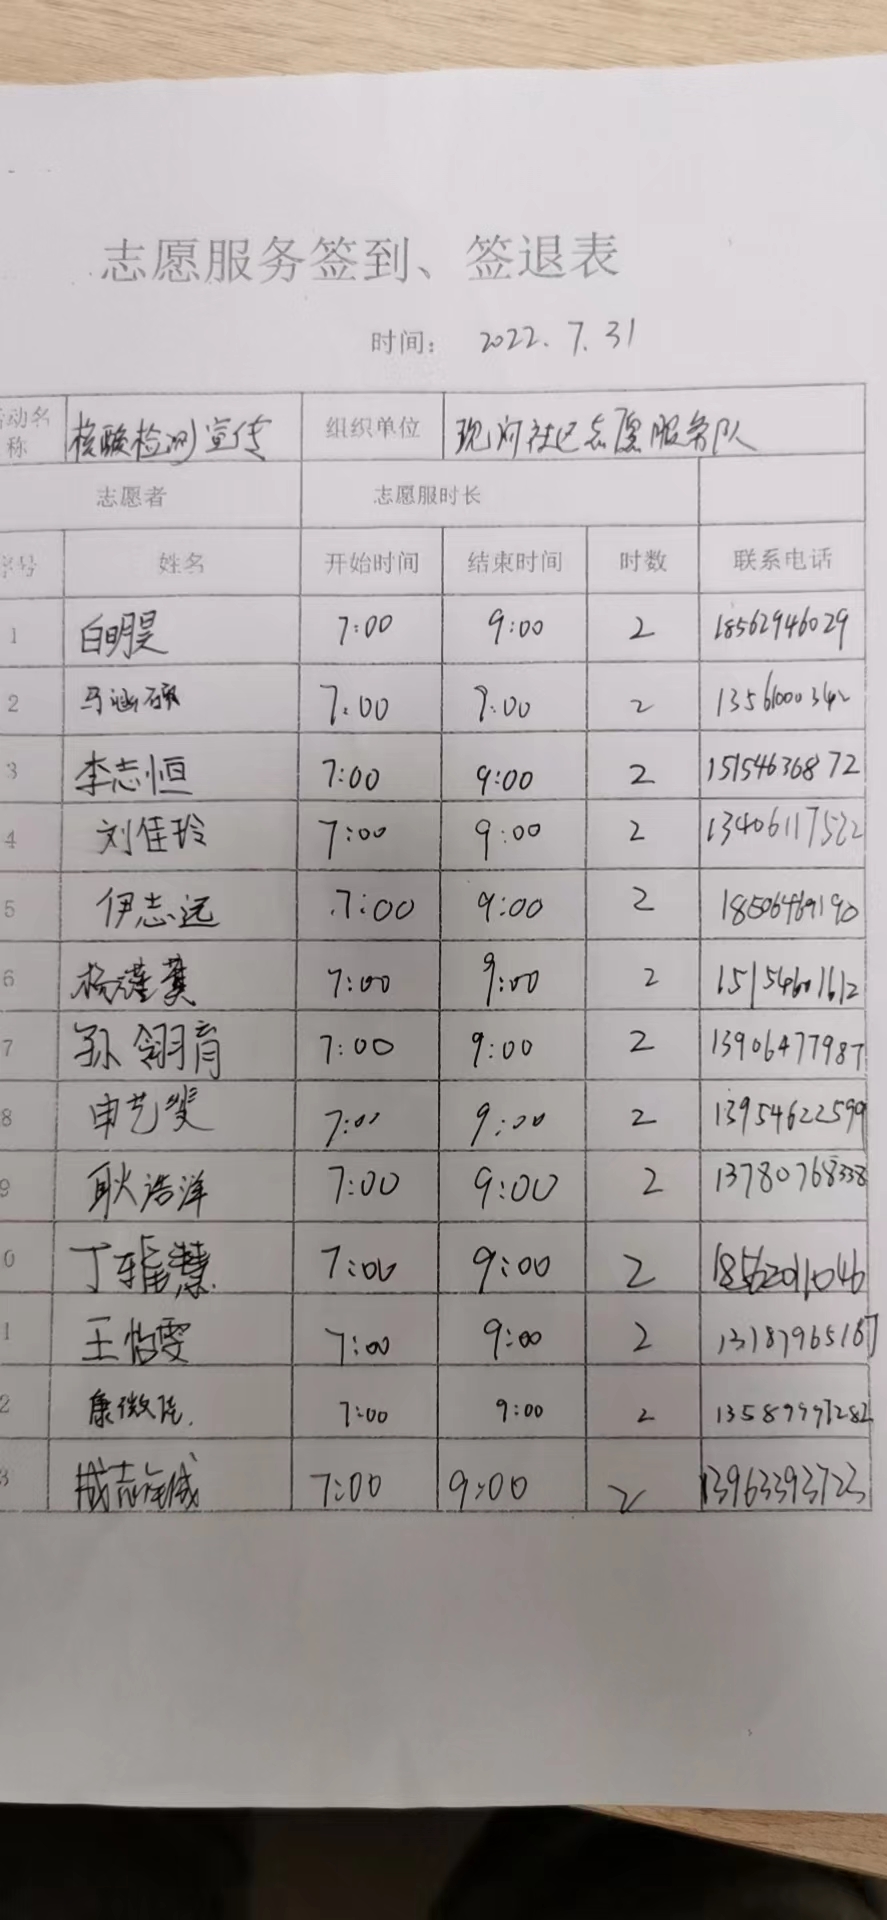 志愿服务签到、签退表
时间: 2022.7.31
活动名称 核酸检测宣传 组织单位 现河社区志愿服务队
志愿者 志愿服时长
序号 姓名 开始时间 结束时间 时数 联系电话
1 白明昊 7:00 9:00 2 18562946029
2 马涵硕 7:00 9:00 2 13561000342
3 李志恒 7:00 9:00 2 15154636872
4 刘佳玲 7:00 9:00 2 13406117522
5 伊志远 7:00 9:00 2 18506469190
6 杨 7:00 9:00 2 15154601612
7 孙翎育 7:00 9:00 2 13906477987
8 申艺斐 7:00 9:00 2 13954622599
9 耿浩洋 7:00 9:00 2 13780768338
0 丁 慧 7:00 9:00 2
1 王怡雯 7:00 9:00 2
2 康微 7:00 9:00 2
3 志 7:00 9:00 2 13963393723